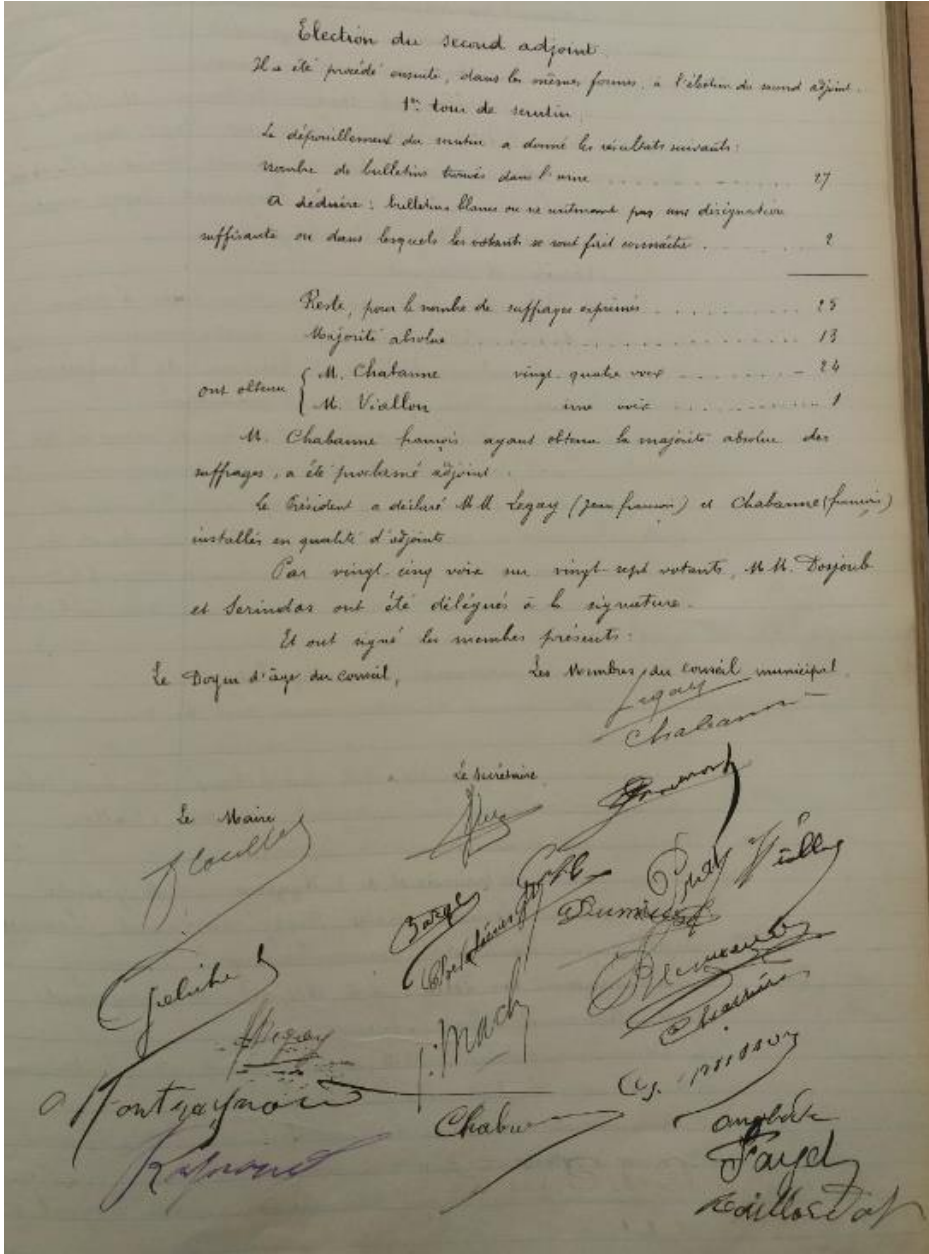 Election du second adjoint.
Il a été procédé ensuite, dans les mêmes formes, à l'élection du second adjoint.
1er tour de scrutin.
Le dépouillement du scrutin a donné les résultats suivants:
Nombre de bulletins trouvés dans l'urne .................... 27
A déduire: bulletins blancs ou ne contenant pas une désignation
suffisante ou dans lesquels les votants se sont fait connaître. .......... 2
Reste, pour le nombre de suffrages exprimés .............. 25
Majorité absolue .................... 13
ont obtenu { M. Chabanne vingt-quatre voix .......... 24
M. Viallon une voix .............. 1
M. Chabanne françois ayant obtenu la majorité absolue des
suffrages, a été proclamé adjoint.
Le Président a déclaré M M Legay (Jean françois) et Chabanne (françois)
installés en qualité d'adjoints
Par vingt-cinq voix sur vingt-sept votants, M M. Dosjoub
et Serindas ont été délégués à la signature.
Et ont signé les membres présents:
Le Doyen d'âge du Conseil, Les Membres du Conseil municipal.
Legay
Chabanne
Le Secrétaire
Le Maire
Barge
J. Mach
Chassière
Raymond
Fayet